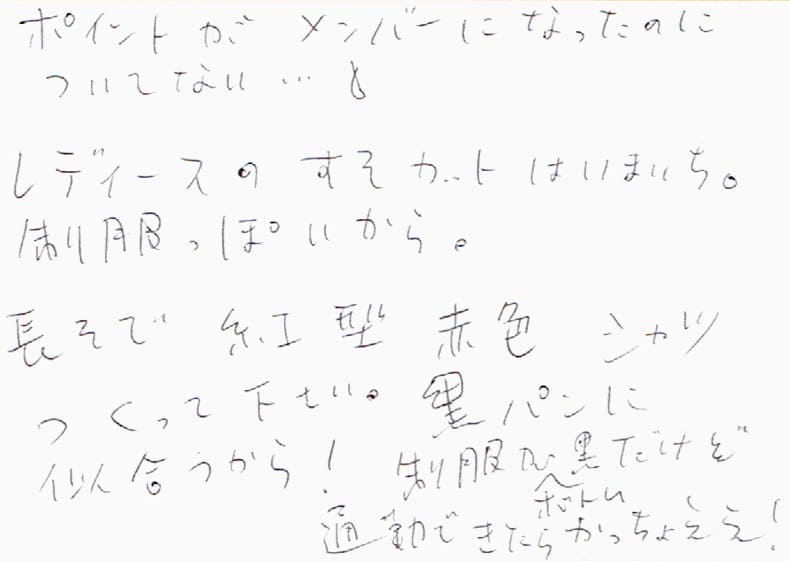 ポイントが メンバーになったのに
ついてない…
レディースの すそカットはいまいち。
制服っぽいから。
長そで 紅型 赤色 シャツ
つくって下さい。黒パンに
似合うから! 制服が黒だけど
ボトム
通勤できたらかっちょええ!